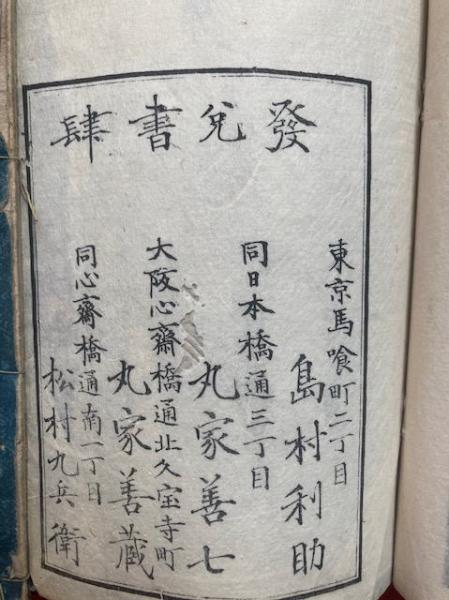 發兌書肆
東京馬喰町二丁目
島村利助
同日本橋通三丁目
丸家善七
大阪心齋橋通北久宝寺町
丸家善蔵
同心齋橋通南一丁目
松村九兵衛